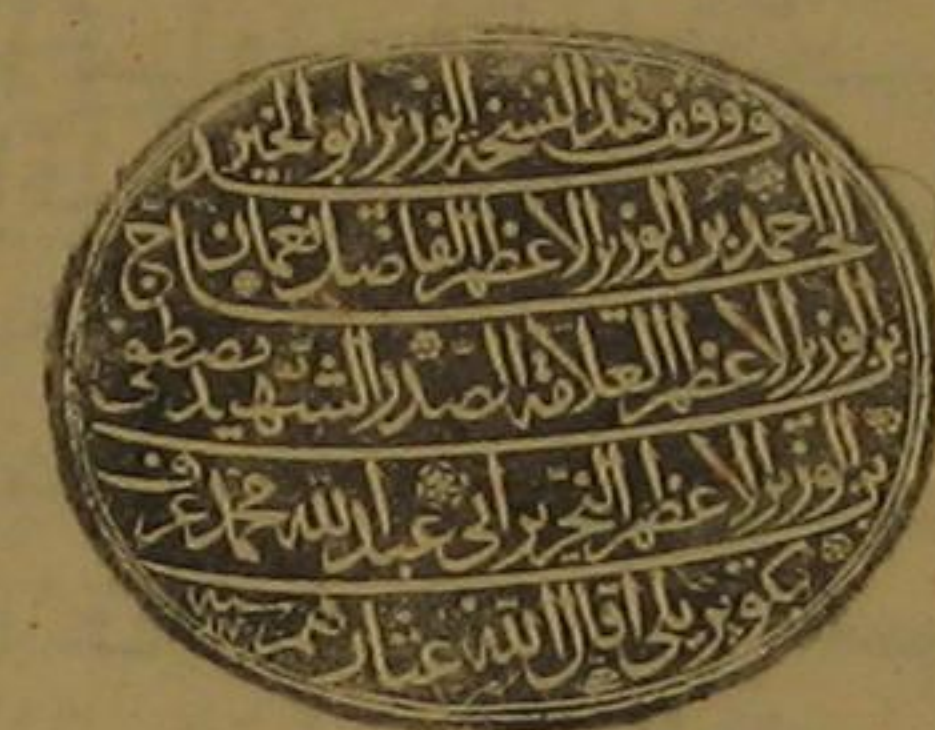 قد وقف هذه النسخة الوزير ابو الخير
الحاج احمد بن الوزير الاعظم الفاضل نعمان
بن الوزير الاعظم العلامة الصدر الشهيد مصطفى
بن الوزير الاعظم النحرير ابي عبد الله محمد عرف
بكوپريلى اقال الله عثارهم